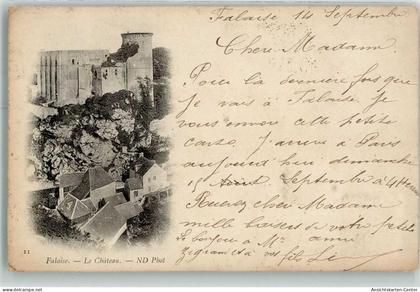 Falaise 14 Septembre
Chere Madame
Pour la dernière fois que
je vais à Falaise Je
vous envoie cette petite
carte J'arrive à Paris
aujourd'hui dimanche
15 Septembre à 4h
Recevez chere Madame
mille baisers de votre petite
le bonjour à Mr amie
et à vos fils
11 Falaise. — Le Château. — ND Phot
www.ansichtskarten-center.de